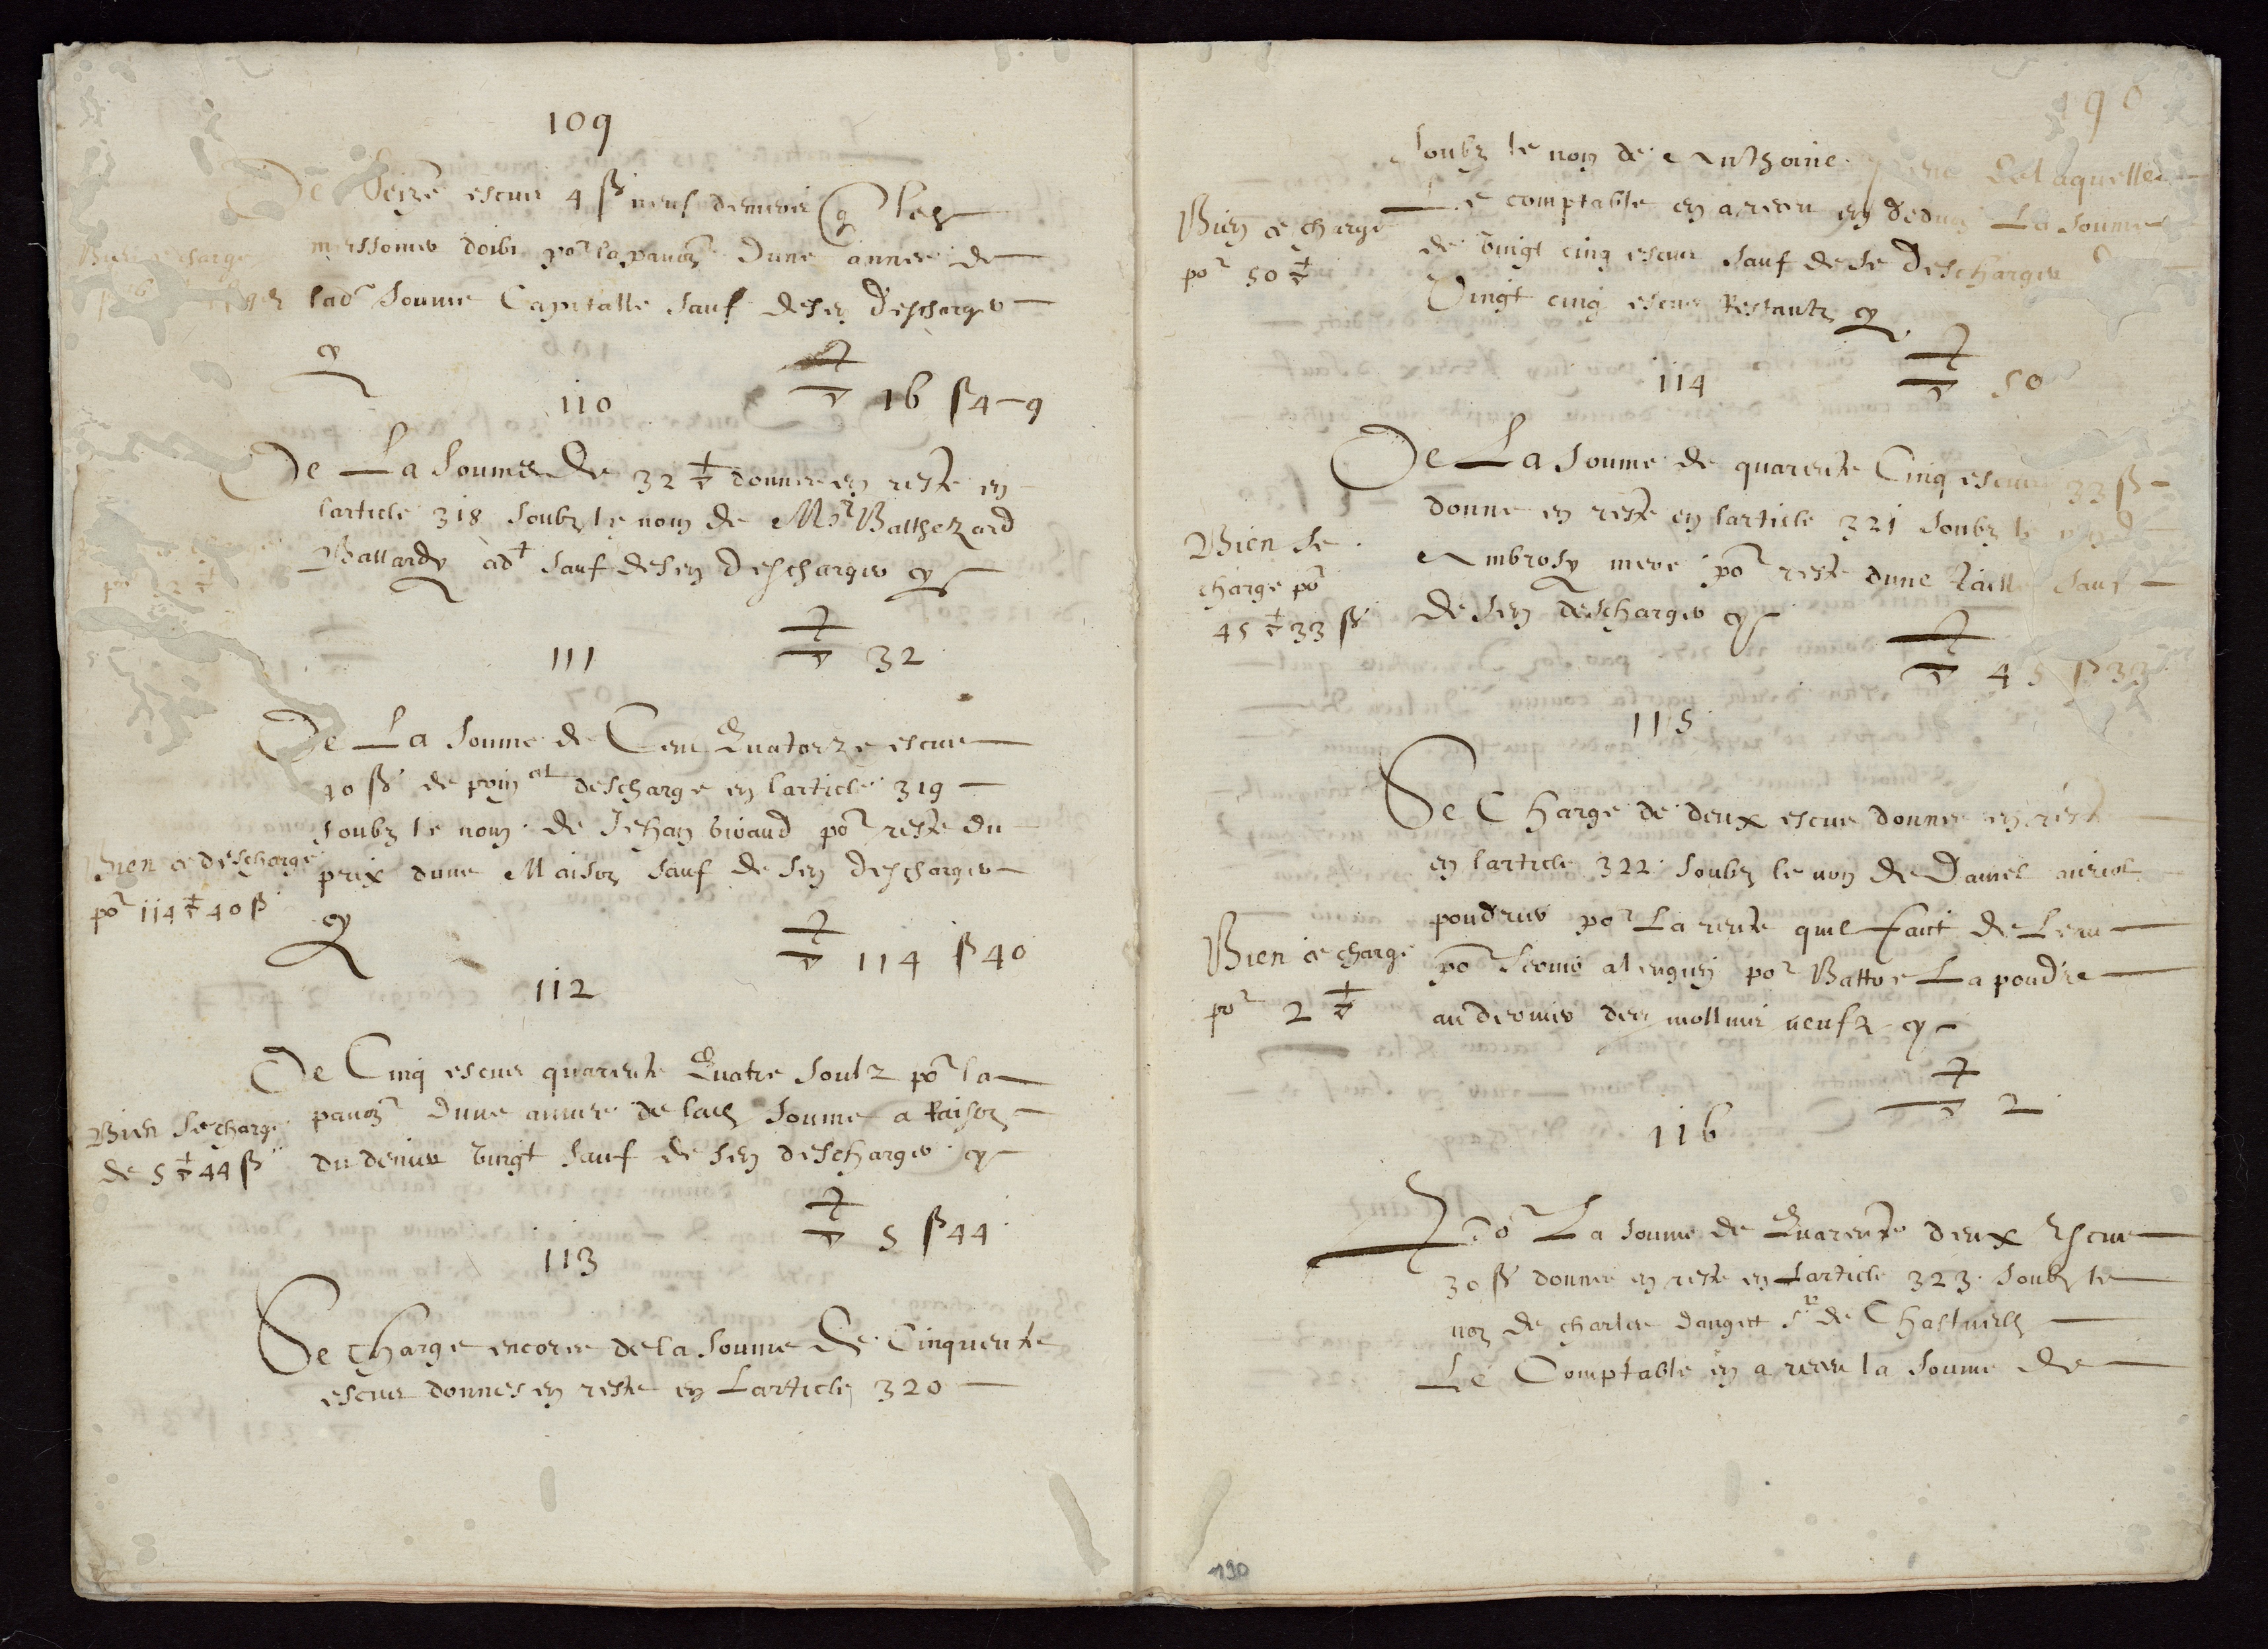 109
De Seize escus 4 ß neuf deniers q les
messoniers doibt por la pancon Dune annee de
Bien se charge
lade Soume Cappitalle sauf desen descharger
cy
16 ß4-9
110
De La Soume De 32 donnee en reste en
larticle 318 soubz le nom de Mr Balthezard
Ballardy adt sauf desen descharger cy
32
111
De La Soume de Cent Quatorze escus
40 ß de poin descharge en larticle 319
soubz le nom de Jehan por reste du
prix dune Maison sauf de sen descharger
Bien ce descharge
por 114 40 ß
cy
114 ß40
112
De Cinq escus quarente Quatre soulz por la
pancon Dune annee de lad Soume a Raison
du denier vingt sauf de sen descharger cy
Bien se charge
de 5 44 ß
5 ß44
113
Se Charge encores de la Soume De Cinquente
escus donnes en reste en Larticle 320
190
soubz le nom de Anthoine De laquelle
Le comptable en a receu en deduon La Soume
de vingt cinq escus sauf de se descharger
Vingt cinq escus Restantz cy
Bien ce charge
por 50
50
114
De La Soume de quarente Cinq escus 33 ß
donne en reste en larticle 321 soubz le
Ambrosy por reste dune taille sauf
de sen descharger cy
Bien se
charge por
45 33 ß
45 ß33
115
Se Charge de deux escus donnee en reste
en larticle 322 soubz le nom de Daniel
poudrier por La rente quil faict de Leau
por por Battre La poudre
au dernier des mollins neufz cy
Bien ce charge
por 2
2
116
La Soume de Quarente deux Escus
30 ß donnee en reste en Larticle 323 soubz le
nom de charles Sr de
Le Comptable en a receu la Soume de
190